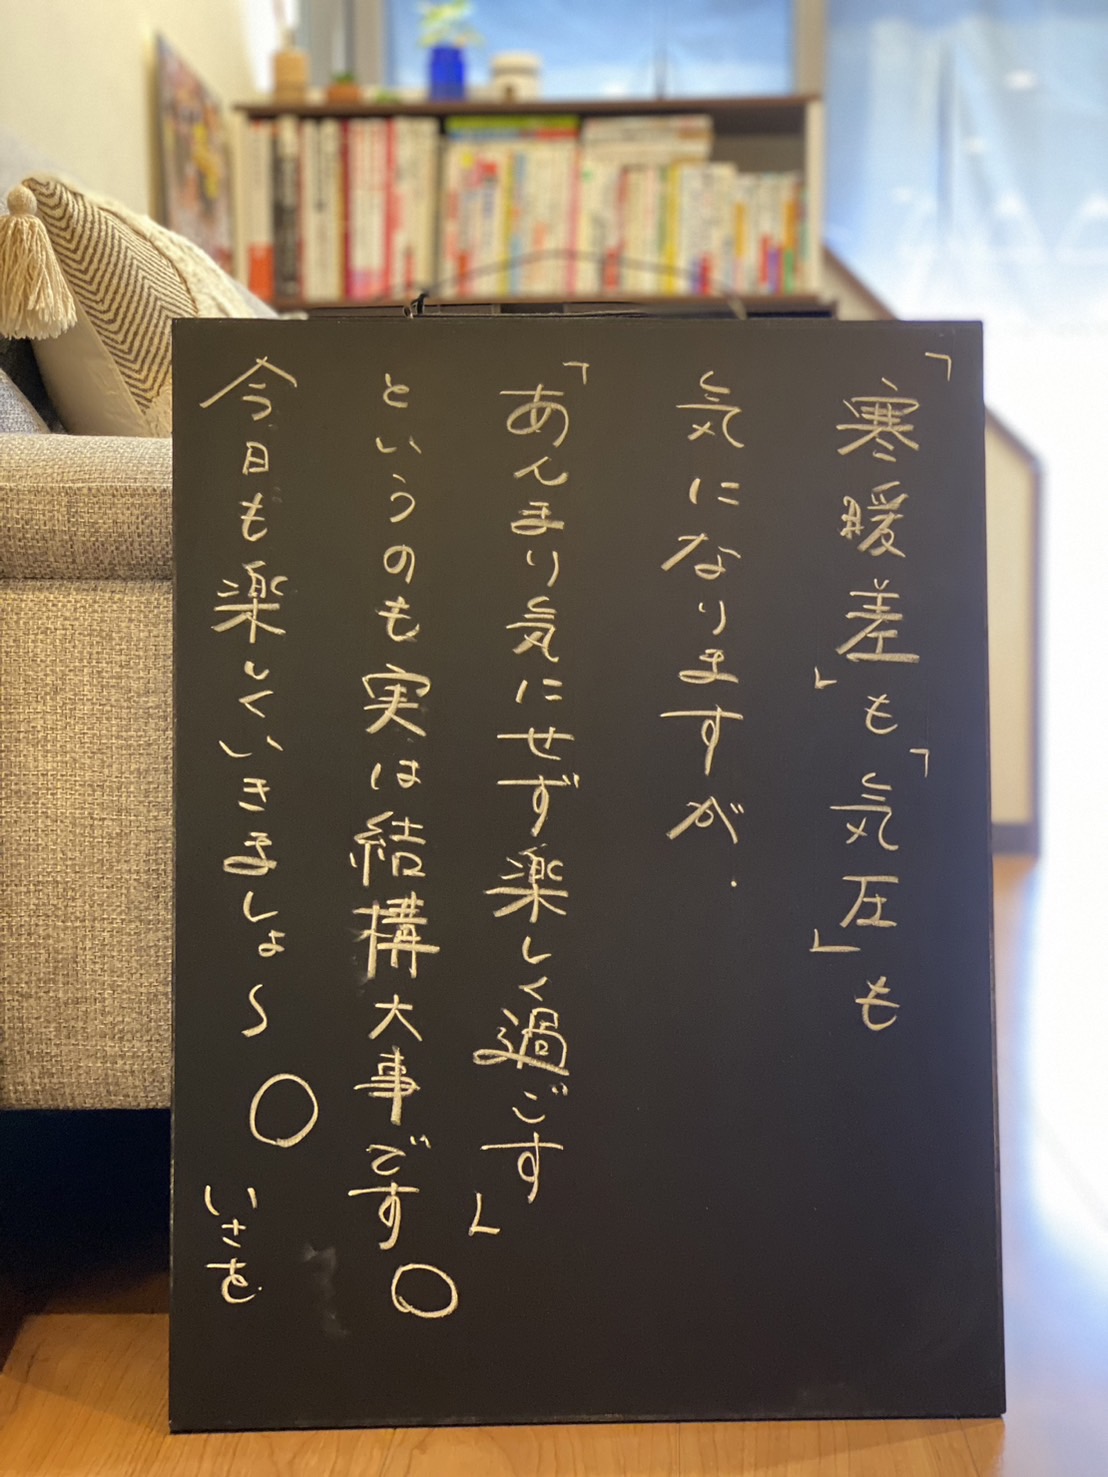 「寒暖差」も「気圧」も
気になりますが.
「あんまり気にせず楽しく過ごす」
というのも実は結構大事です。
今日も楽しくいきましょ〜。
いさを